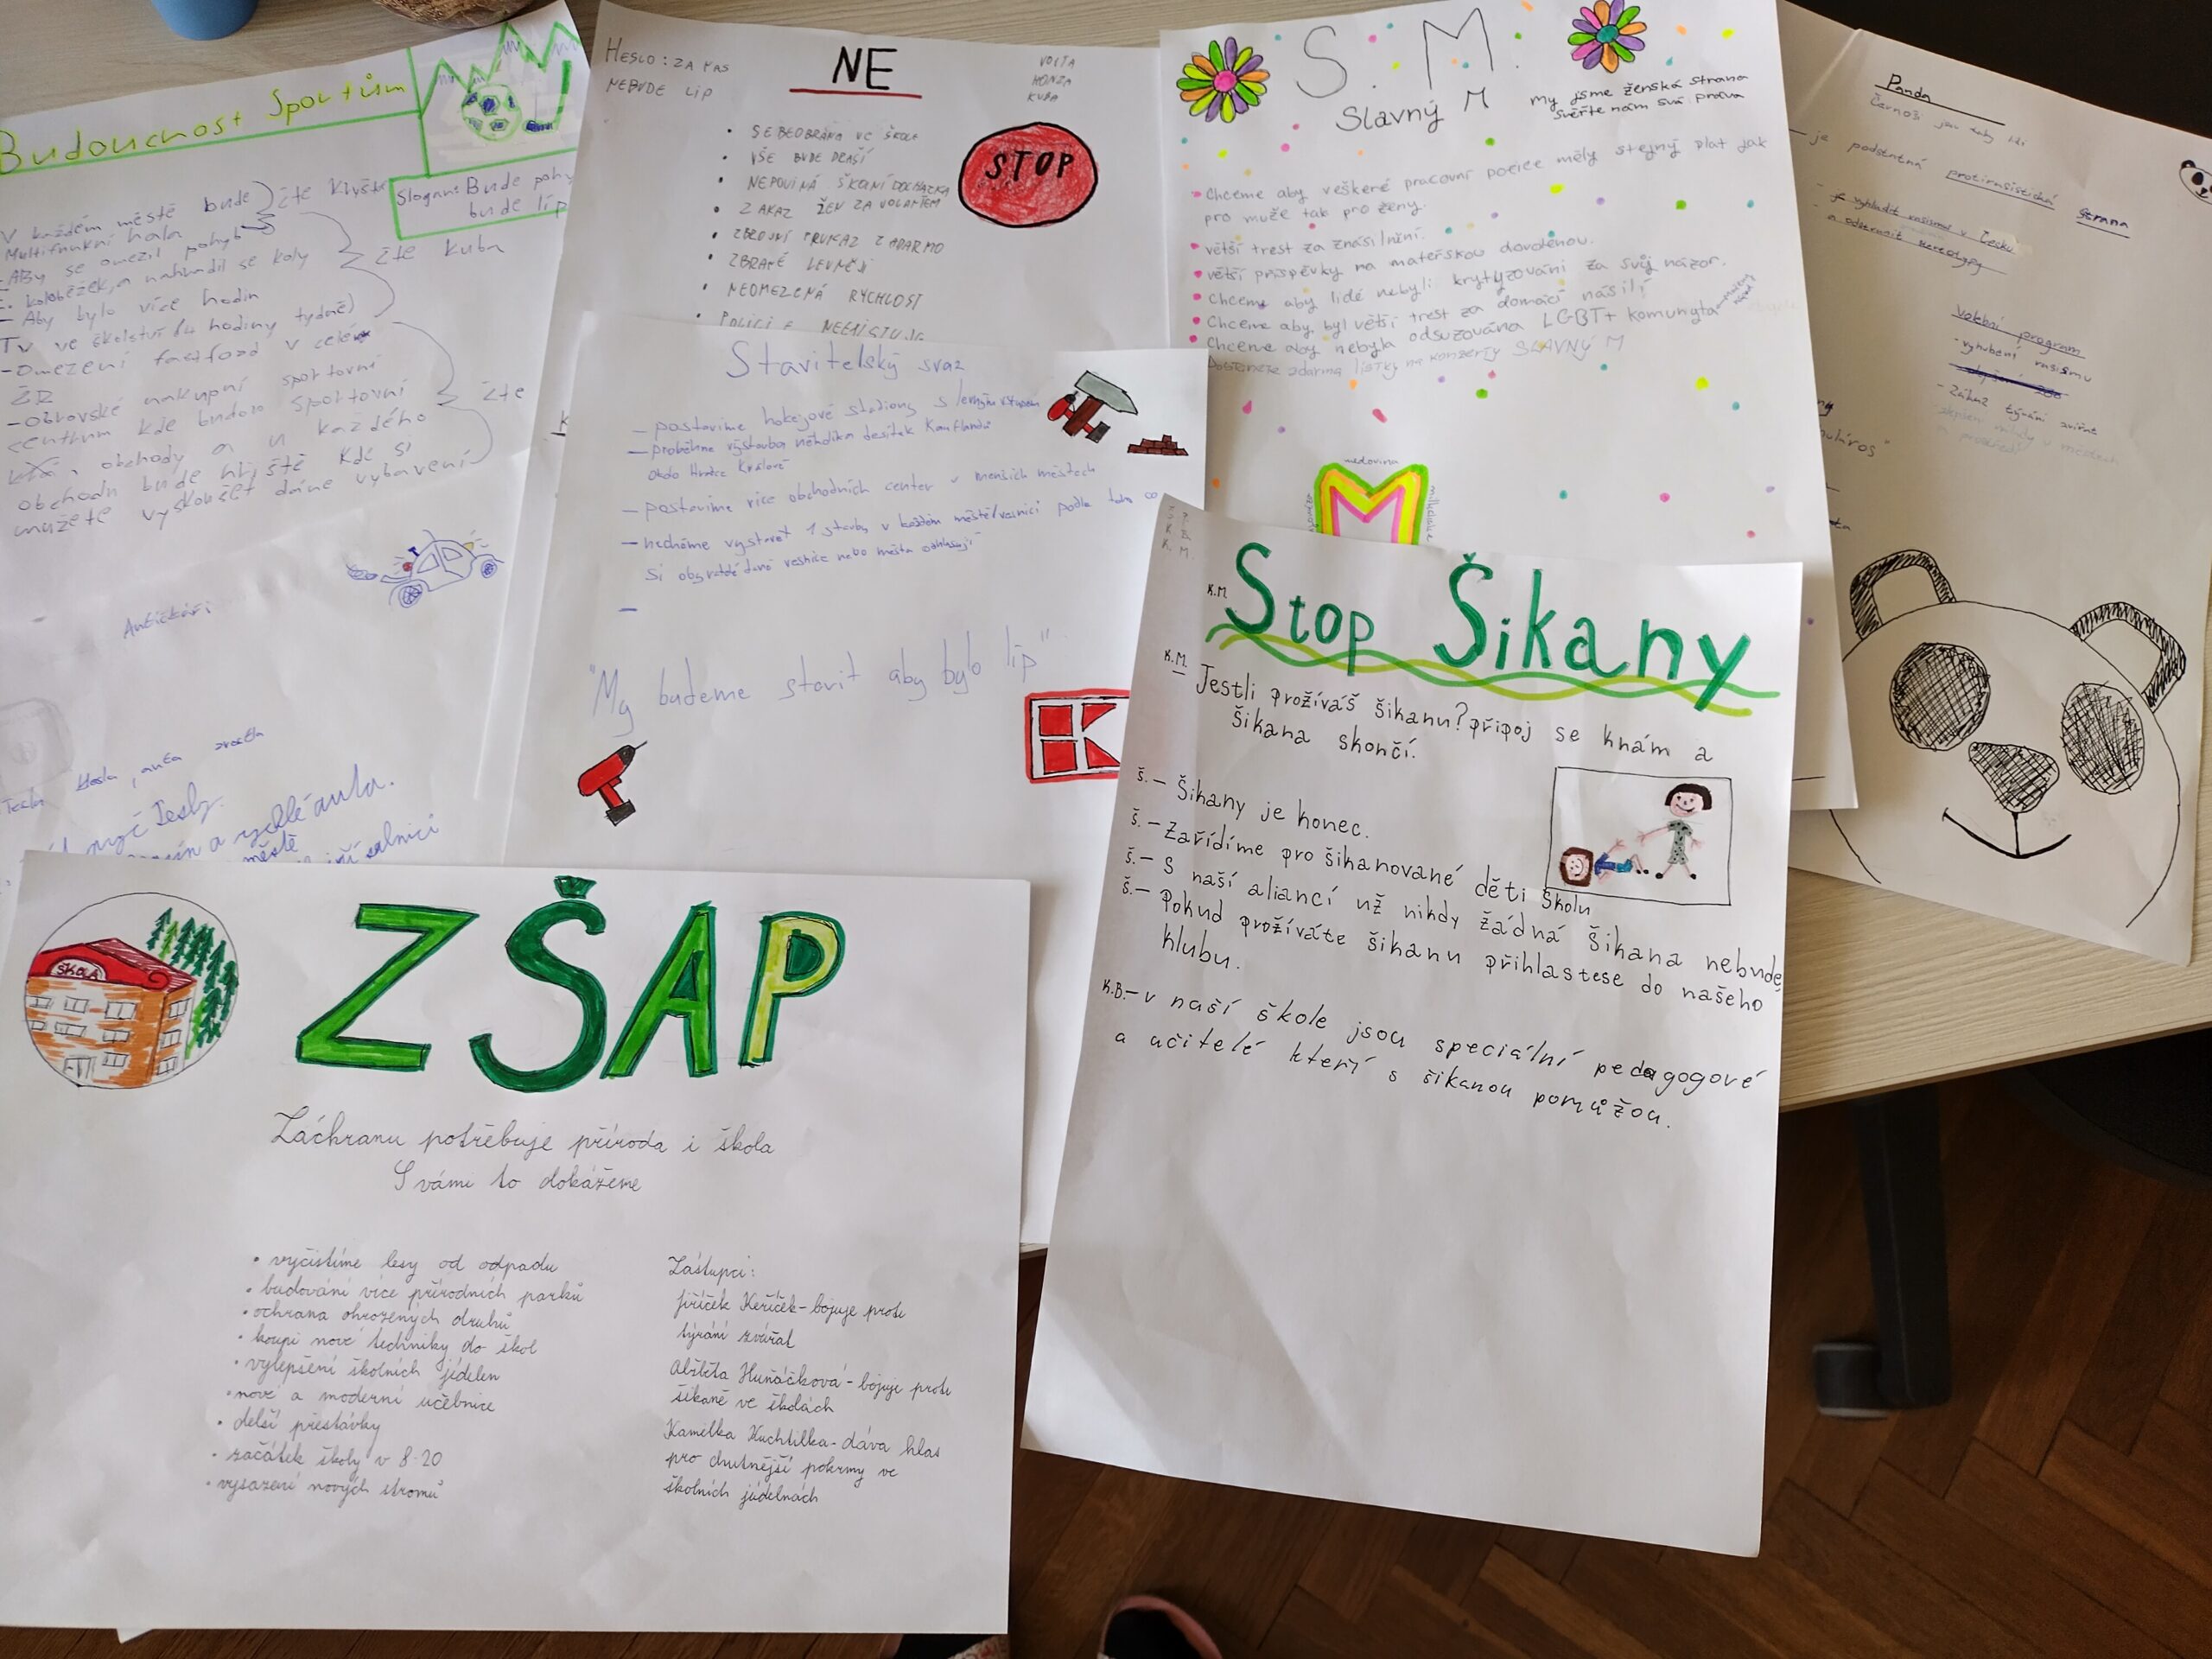 Budoucnost Sportům
Slogan: Bude pohyb
bude líp
V každém městě bude
Multifunkní hala
-Aby se omezil pohyb
koloběžek, a nahradil se koly
- Aby bylo více hodin
TV ve školství (4 hodiny týdně)
-omezení fastfood v celé
ČR
-obrovské nákupní sportovní
centrum kde budou sportovní
obchody a u každého
obchodu bude hřiště kde si
můžete vyskoušet dané vybavení
čte
čte Kuba
čte
Antičkáři
Tesly.
a rychlé auta.
městě
HESLO: ZA NAS
NEBUDE LIP
NE
VOJTA
HONZA
KUBA
STOP
• SEBEOBRANA VE ŠKOLE
• VŠE BUDE DRAŠÍ
• NEPOVINÁ ŠKOLNÍ DOCHÁZKA
• ZAKAZ ŽEN ZA VOLANTEM
• ZBROJNÍ PRUKAZ ZADARMO
• ZBRANĚ LEVNĚJI
• NEOMEZENÁ RYCHLOST
S. M.
Slavný M
My jsme ženská strana
svěřte nám svá práva
• Chceme aby veškeré pracovní pozice měly stejný plat jak
pro muže tak pro ženy.
• větší trest za znásilnění.
• větší příspěvky na mateřskou dovolenou.
• Chceme aby lidé nebyli krytyzováni za svůj názor.
• Chceme aby byl větší trest za domácí násilí
• Chceme aby nebyla odsuzována LGBT+ komunyta
Dostanete zdarma lístky na koncerty SLAVNÝ M
medovina
M
milkshake
Panda
je podstatná protirasistická strana
- je vyhladit rasismu v Česku
- a odstranit stereotypy
Volební program
- vyhubení rasismu
- Zákaz týrání zvířat
Stavitelský svaz
- postavíme hokejové stadiony s levným vstupem
- proběhne výstavba několika desítek Kauflandů
okolo Hradce Králové
- postavíme více obchodních center v menších městech
- necháme vystavět 1 stavbu v každém městě/vesnici podle toho co
si obyvatelé dané vesnice nebo města odhlasují
"My budeme stavit aby bylo líp"
K
K.M.
Stop Šikany
K.M.
- Jestli prožíváš šikanu? připoj se knám a
šikana skončí.
Š.- Šikany je konec.
Š.- Zařídíme pro šikanované děti školu
Š.- S naší aliancí už nikdy žádná šikana nebude,
Š.- Pokud prožíváte šikanu přihlastese do našeho
klubu.
K.B.- v naší škole jsou speciální pedagogové
a učitelé kteří s šikanou pomůžou.
ŠKOLA
ZŠAP
Záchranu potřebuje příroda i škola
S vámi to dokážeme
• vyčistíme lesy od odpadu
• budování více přírodních parků
• ochrana ohrožených druhů
• koupi nové techniky do škol
• vylepšení školních jídelen
• nové a moderní učebnice
• delší přestávky
• začátek školy v 8:20
• vysazení nových stromů
Zástupci:
Jiříček Keříček- bojuje proti
týrání zvířat
Alžběta Huňáčková - bojuje proti
šikaně ve školách
Kamilka Kuchtilka- dává hlas
pro chutnější pokrmy ve
školních jídelnách